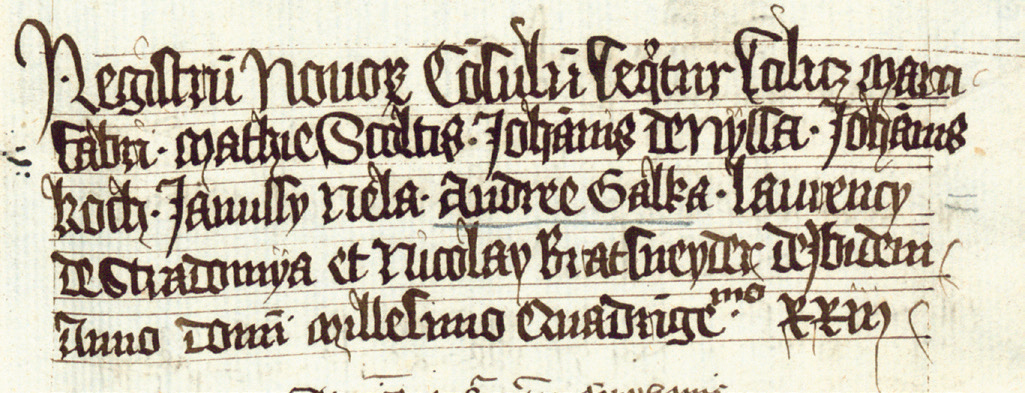 Registrū Novorꝝ Cōsulū seqͥtur scilicꝫ Marci
fabri · Mathie Scoltis · Johānis de Nyssa · Johānis
Koch · Janussy Nela · Andree Galka · Laurency
de Stradomya et Nicolay Bratsneyder de Ibidem
Anno domī Millesimo Quadringeͫͦ · XXIII